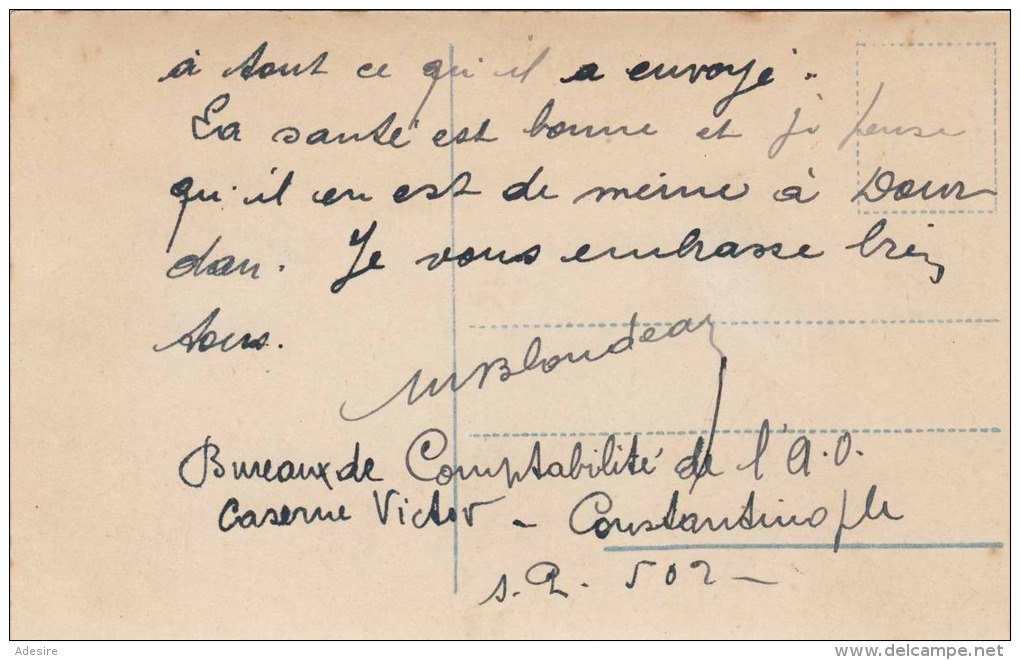 à tout ce qu'il a envoyé.
La santé est bonne et je pense
qu'il en est de même à Dour-
dan. Je vous embrasse bien
tous.
MBlondeau
Bureaux de Comptabilité de l'A.O.
Caserne Victor - Constantinople
S.P. 502 -
Adesire
www.delcampe.net